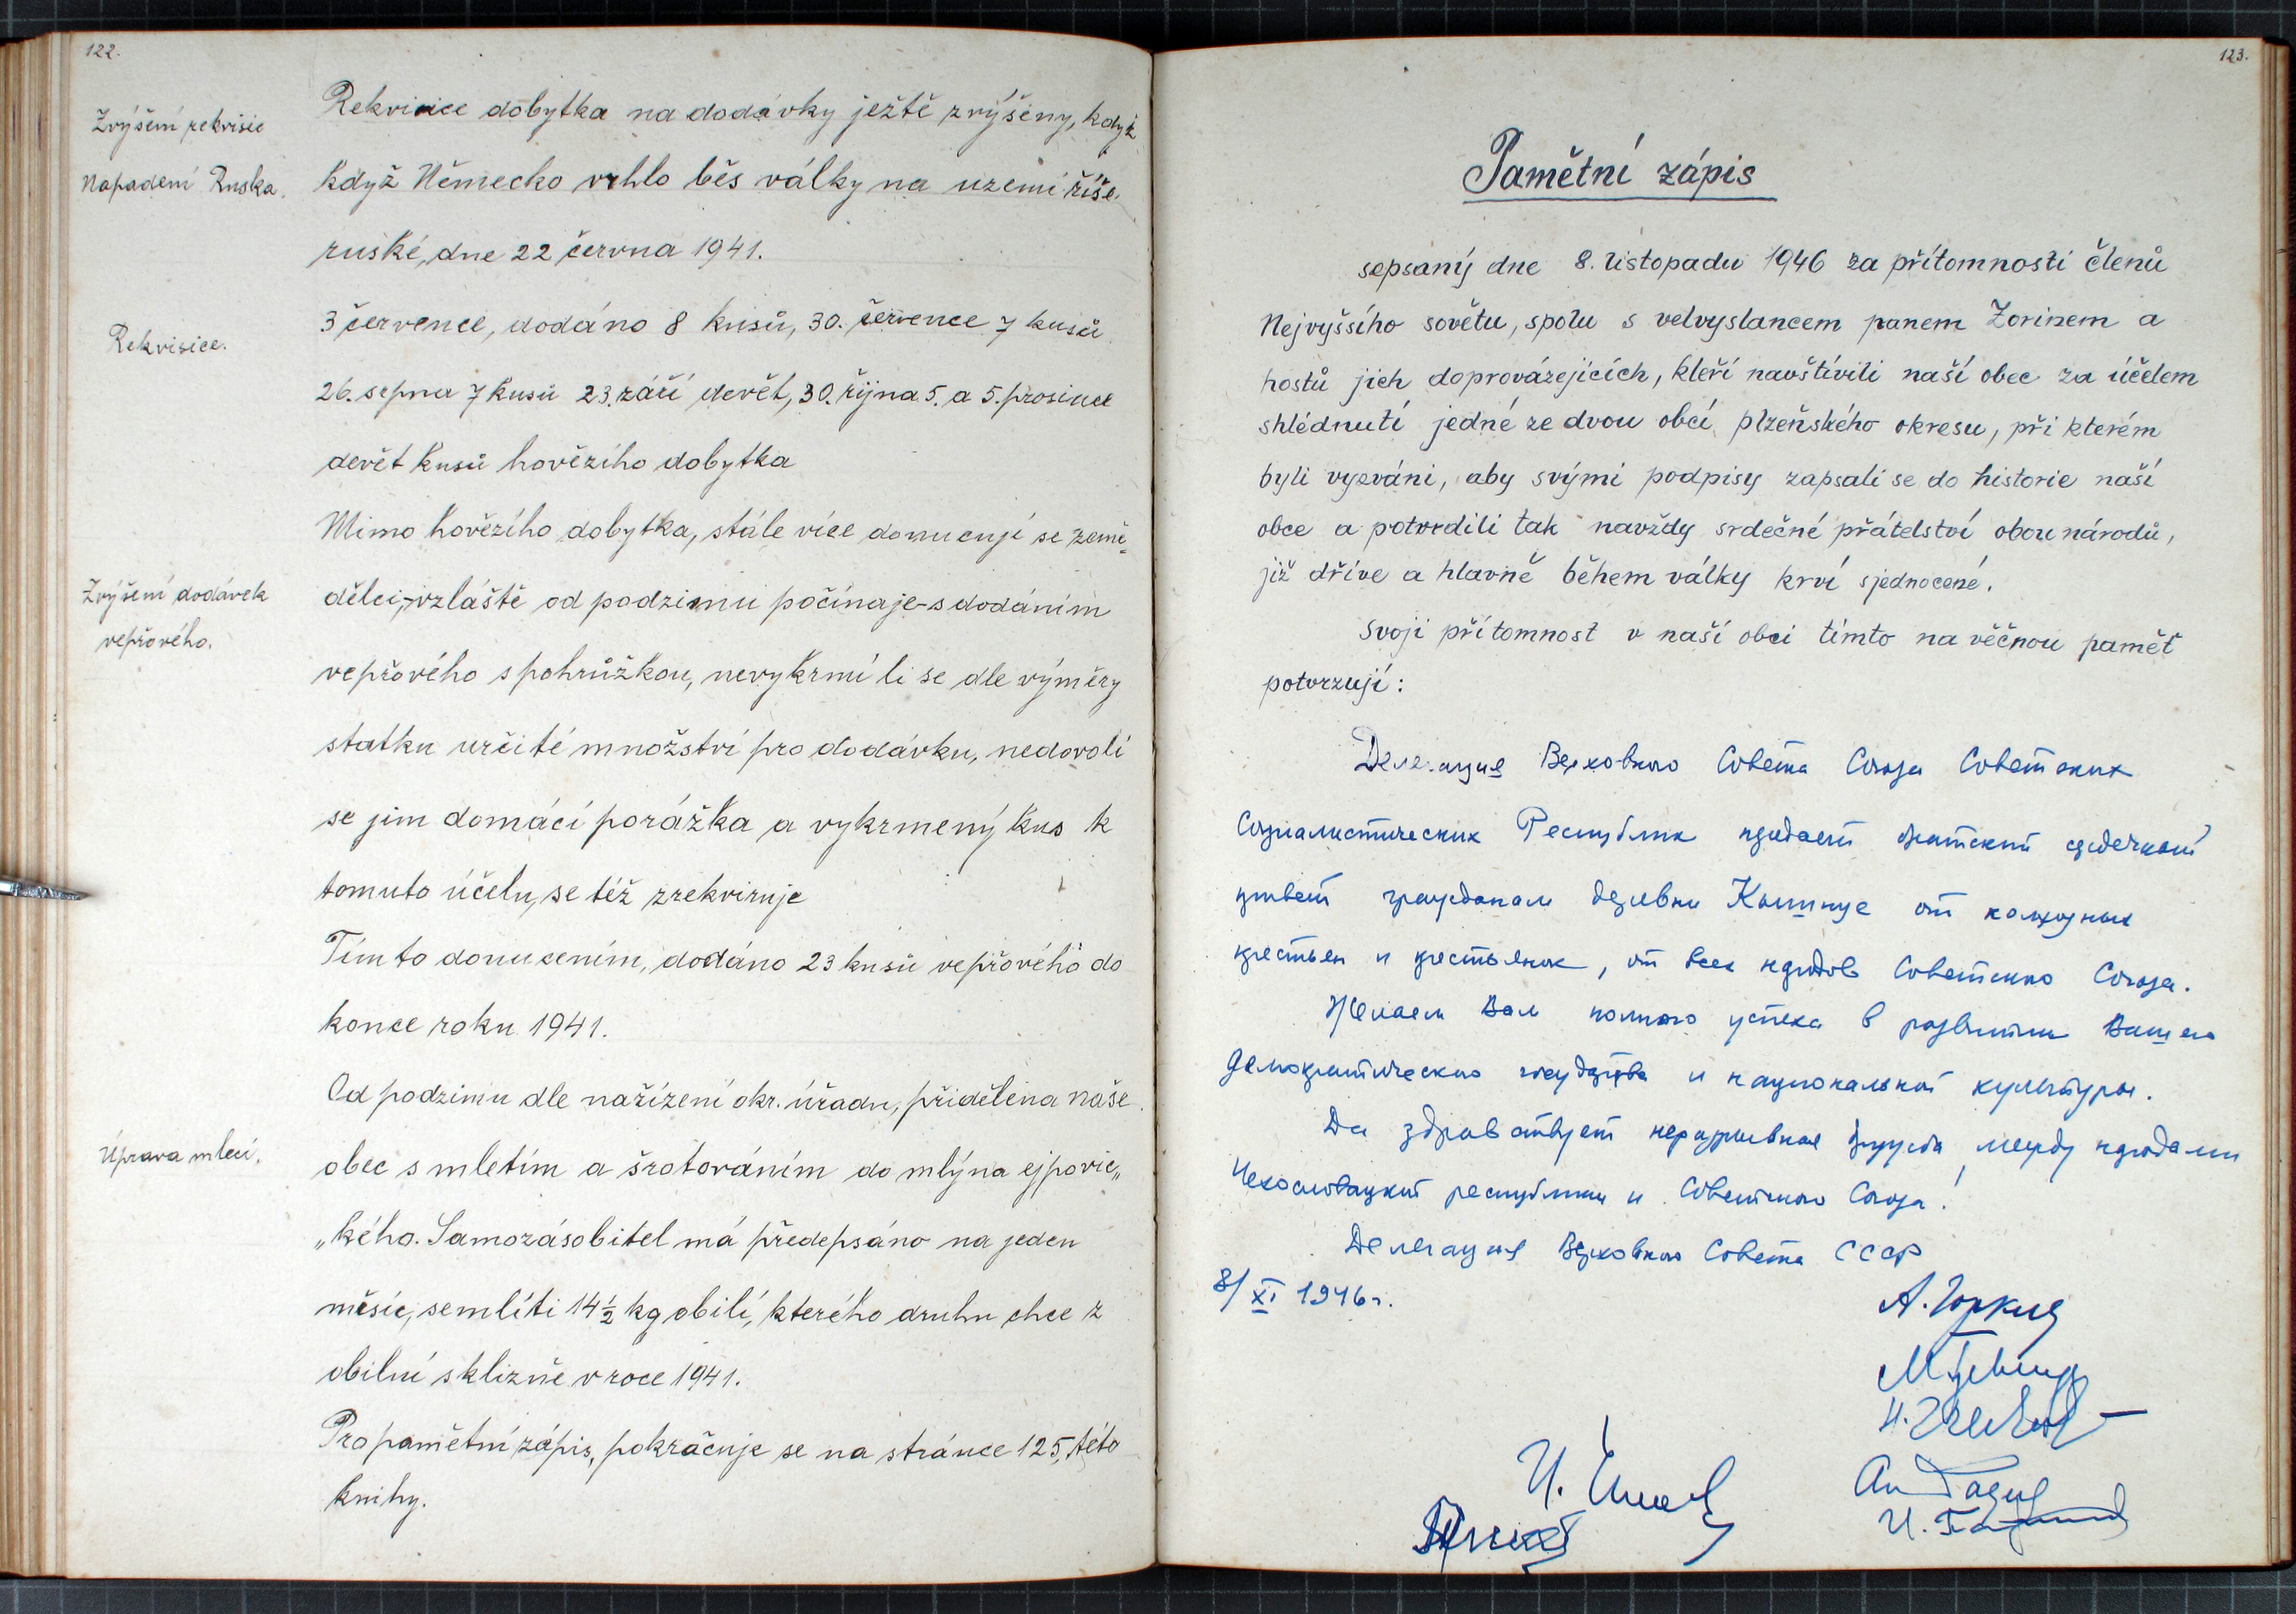 122.
Zvýšení rekvisic
Napadení Ruska.
Rekvisice dobytka na dodávky ještě zvýšeny, když
když Německo vrhlo běs války na uzemí říše
ruské, dne 22 června 1941.
Rekvisice.
3 července, dodáno 8 kusů, 30. července 7 kusů
26. srpna 7 kusů 23. září devět, 30. října 5. a 5. prosince
devět kusů hovězího dobytka
Mimo hovězího dobytka, stále více donucují se země-
Zvýšení dodávek
vepřového.
dělci, -vzláště od podzimu počínaje- s dodáním
vepřového s pohrůžkou, nevykrmí li se dle výměry
statku určité množství pro dodávku, nedovolí
se jim domácí porážka a vykrmený kus k
tomuto účelu, se též zrekviruje
Tímto donucením, dodáno 23 kusů vepřového do
konce roku 1941.
Od podzimu dle nařízení okr. úřadu, přidělena naše
Úprava mletí.
obec s mletím a šrotováním do mlýna ejpovic„
„kého. Samozásobitel má předepsáno na jeden
měsíc, semlíti 14½ kg obilí, kterého druhu chce z
obilní sklizně v roce 1941.
Pro pamětní zápis, pokračuje se na stránce 125, této
knihy.
123.
Pamětní zápis
sepsaný dne 8. listopadu 1946 za přítomnosti členů
Nejvyššího sovětu, spolu s velvyslancem panem Zorinem a
hostů jich doprovázejících, kteří navštívili naší obec za účelem
shlédnutí jedné ze dvou obcí plzeňského okresu, při kterém
byli vyzváni, aby svými podpisy zapsali se do historie naší
obce a potvrdili tak navždy srdečné přátelství obou národů,
již dříve a hlavně během války krví sjednocené.
Svoji přítomnost v naší obci tímto na věčnou paměť
potvrzují:
Делегация Верховного Совета Союза Советских
Социалистических Республик передает братский сердечный
привет гражданам деревни от колхозных
крестьян и крестьянок, от всех народов Советского Союза.
Желаем Вам полного успеха в развитии Вашего
демократического государства и национальной культуры.
Да здравствует неразрывная дружба между народами
Чехословацкой республики и Советского Союза!
Делегация Верховного Совета СССР
8/XI 1946 г.
А. Горкин